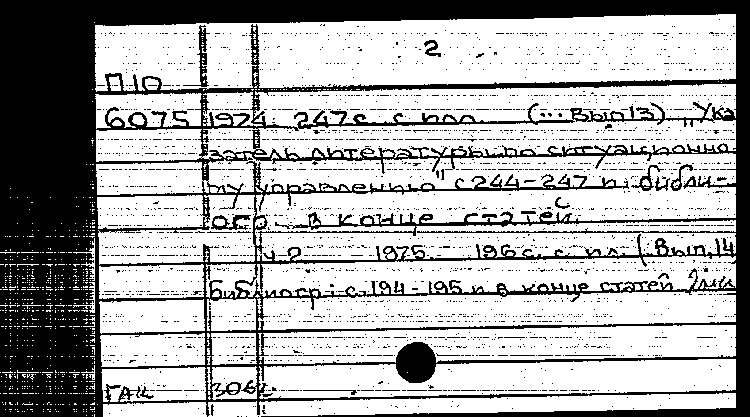 2
П10
6075 1974. 247с. с илл. (...Вып 13) „Ука
затель литературы по ситуационно
му управлению" с 244-247 и библи-
огр. в конце статей.
ч.2 1975 196 с. с ил. (Вып.14
Библиогр: с.194-195 и в конце статей
3062